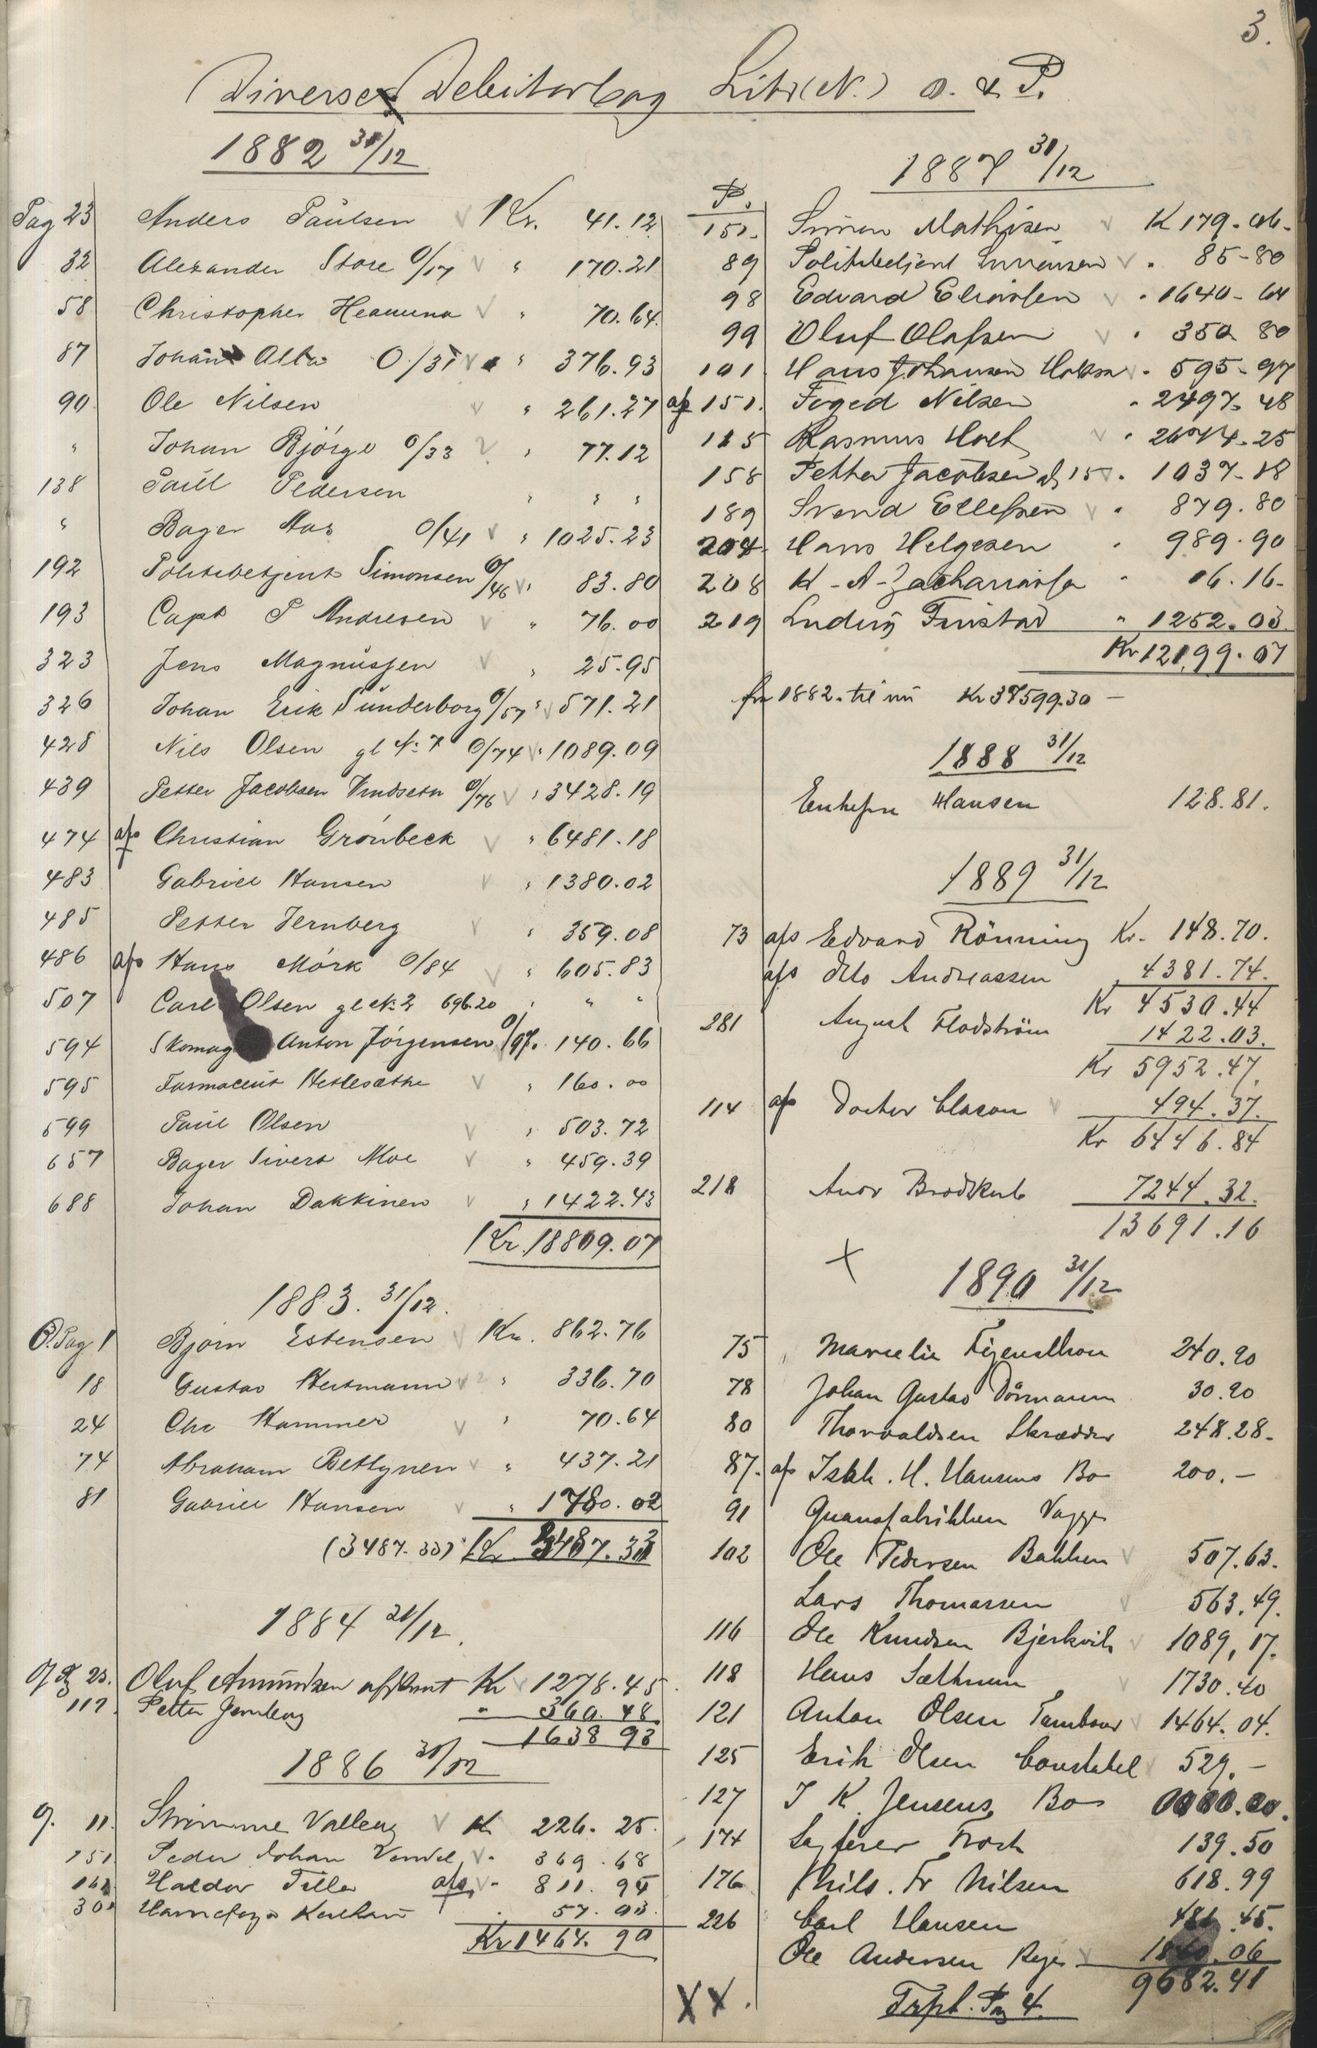 3.
Diverse Debitorbog Litr (N.) O. & P.
1882 31/12
Pag 23 Anders Paulsen Kr. 41.12
32 Alexander Store O/17 " 170.21
58 Christopher Heamuna " 70.64
87 Johan O/31 " 376.93
90 Ole Nilsen " 261.27
" Johan Bjørge O/33 " 77.12
138 Paul Pedersen " " "
" Bager Aas O/41 " 1025.23
192 Politibetjent Simonsen O/46 " 83.80
193 Capt P Andresen " 76.00
323 Jens Magnussen " 25.95
326 Johan Erik Sunderborg O/57 " 571.21
428 Nils Olsen gl No 7 O/74 " 1089.09
439 Petter Jacobsen O/76 " 3428.19
474 afs Christian Grönbeck " 6481.18
483 Gabriel Hansen " 1380.02
485 Petter Jernberg " 359.08
486 afs Hans Mörk O/84 " 605.83
507 Carl Olsen gl No 2 696.20 " " "
594 Skomag Anton Jörgensen O/97. 140.66
595 Farmaceut Hetlesæthe " 160.00
599 Paul Olsen " 503.72
657 Bager Sivert Moe " 459.39
688 Johan Dakkinen " 1422.43
Kr. 18809.07
1883. 31/12.
Pag 1 Bjørn Estensen Kr. 862.76
18 Gustav Hertmann " 336.70
24 Chr Hammer " 70.64
74 Abraham Bethynen " 437.21
81 Gabriel Hansen " 1780.02
(3487.33) Kr 3487.33
1884 31/12.
23. Oluf Amundsen Kr 1278.45
117 Petter Jernberg " 360.48
1638 93
1886 31/12
11. Strømme Kr 226.25
151 Peder Johan " 369.68
Haldor Teller afs " 811.94
57.03
Kr 1464.90
1887 31/12
P.
151. Simon Mathisen K 179.06.
89 Politibetjent Simonsen " 85-80
98 Edvard Eliassen " 1640-64
99 Oluf Olafsen " 350 80
101 Hans Johansen " 595-97
afs 151. Foged Nilsen " 2497.48
115 Rasmus Holt 25
158 Petter Jacobsen 15 " 1037-18
189 Svend Ellefsen " 879.80
204 Hans Helgesen " 989.90
208 K-A-Zachariassen " 16.16-
219 Ludvig Fristad " 1252.03
Kr 12199.07
fra 1882 til nu Kr 37599.30 -
1888 31/12
Enkefru Hansen 128.81.
1889 31/12
73 afs Edvard Rönning Kr. 148.70.
afs Otto Andreassen 4381.74.
Kr 4530.44
281 August Flodström 1422.03.
Kr 5952.47.
114 afs Doctor Clason 494.37.
Kr 6446.84
218 Andr Brodtkorb 7244.32.
13691.16
X
1890 31/12
75 Marcelie 240.20
78 Johan Gustav Dörmann 30.20
80 Thorvaldsen Skrædder 248.28-
87. afs Isak. H. Hansens Bo 200.-
91 Guanofabrikken Vagge
102 Ole Pedersen Bakken 507.63.
Lars Thomassen 563.49.
116 Ole Knudsen Bjerkvik 1089,17.
118 Hans Sæthrum 1730.40
121 Anton Olsen Tambour 1464.04.
125 Erik Olsen Constabel 529.-
127 I K Jensens Bo
174 139.50
176 Nils. Fr Nilsen 618.99
226 Carl Hansen 481.45.
Ole Andersen 1840.06
9682.41
XX. Trpt. Pag 4.